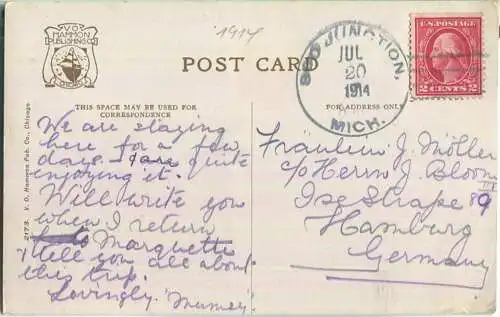 V.O.
HAMMON
PUBLISHING CO.
CHICAGO
1914
POST CARD
JUNCTION.
JUL
20
1914
MICH.
U.S. POSTAGE
2 CENTS 2
THIS SPACE MAY BE USED FOR
CORRESPONDENCE
FOR ADDRESS ONLY
2173. V. O. Hammon Pub. Co., Chicago.
We are staying
here for a few
days. & are quite
enjoying it.
Will write you
when I return
to Marquette
& tell you all about
this trip.
Lovingly.
Fräulein J. Möller
c/o Herrn J. Bloom
Isestraße 89 III
Hamburg
Germany